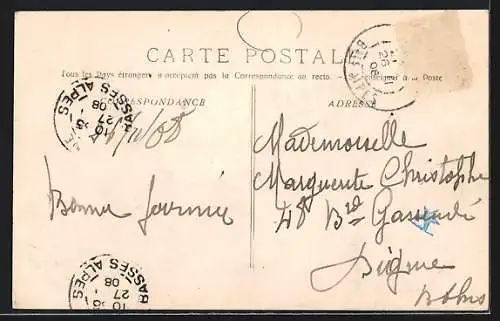 CARTE POSTALE
Tous les Pays étrangers n'acceptent pas la Correspondance au recto. Se renseigner à la Poste
CORRESPONDANCE
ADRESSE
BASSES ALPES
27
08
Mademoiselle
Marguerite Christophe
48 Bd Gassendi
Digne
Bonne journée
BASSES ALPES
10
27
08